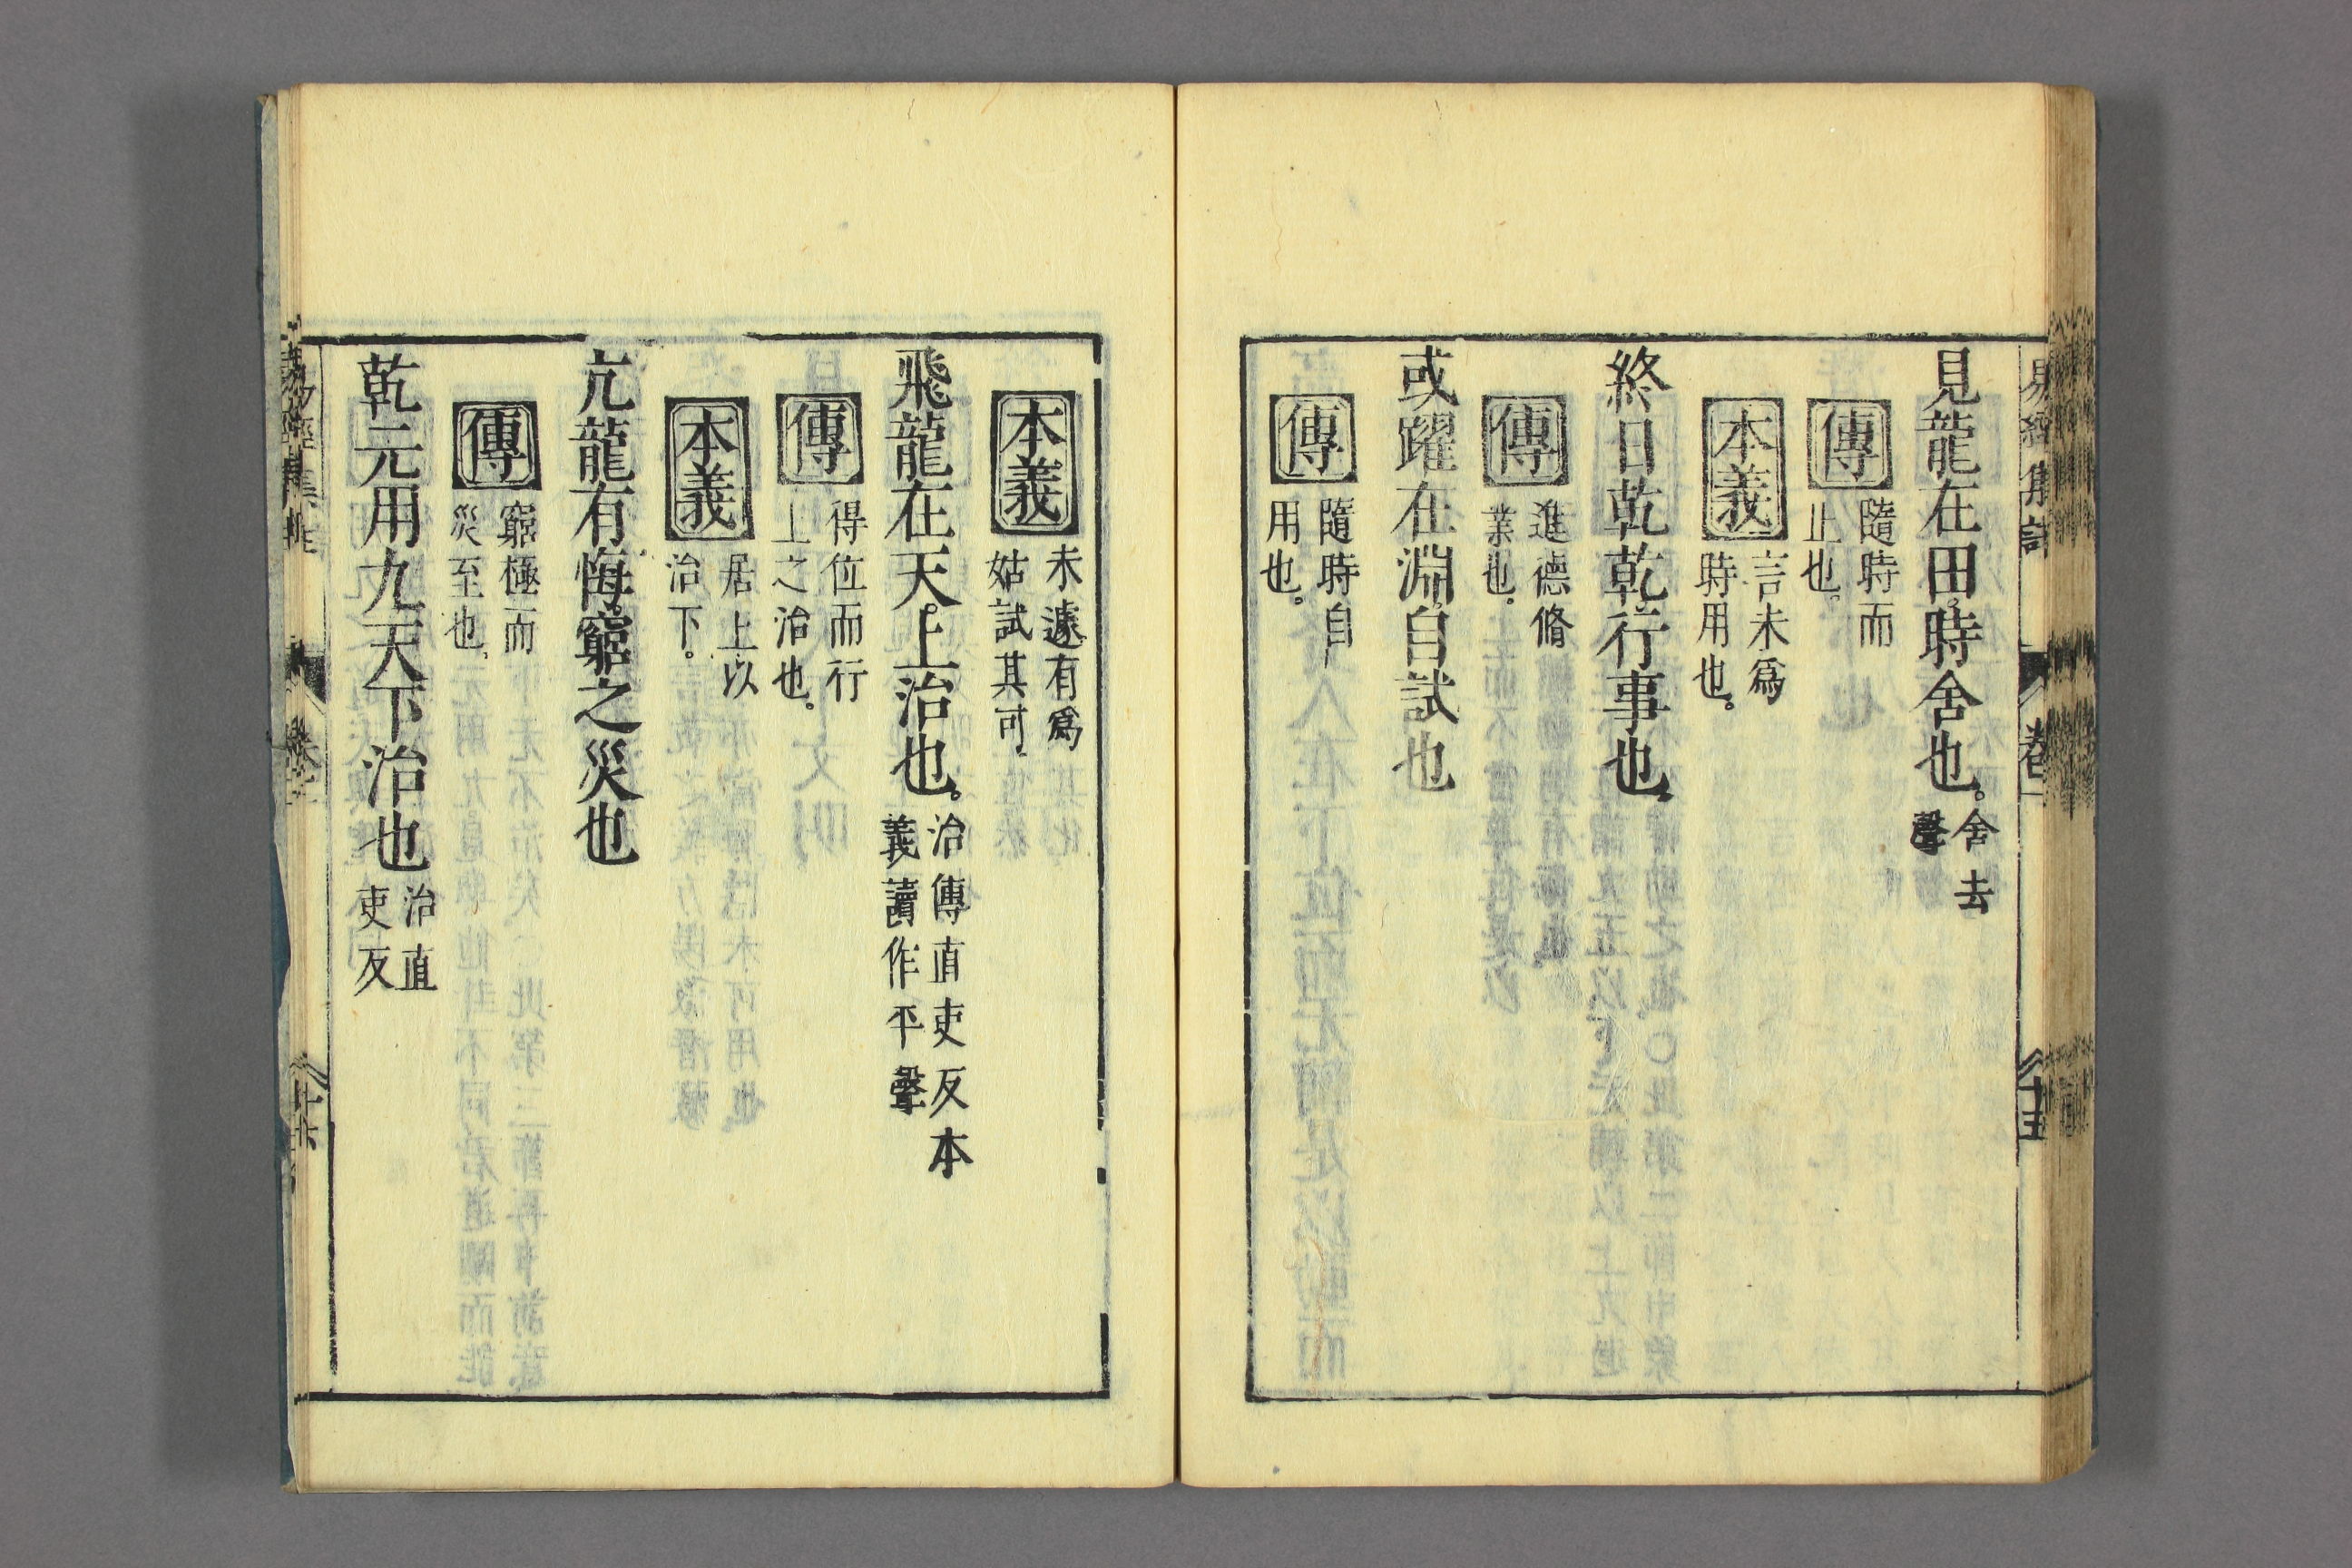 見龍在田。時舍也。舍去聲
傳 隨時而止也。
本義 言未爲時用也。
終日乾乾行事也。
傳 進德脩業也。
或躍在淵。自試也
傳 隨時自用也。
本義 未遽有爲姑試其可。
飛龍在天。上治也。治傳直吏反本義讀作平聲
傳 得位而行上之治也。
本義 居上以治下。
亢龍有悔。窮之災也
傳 窮極而災至也。
乾元用九天下治也 治直吏反